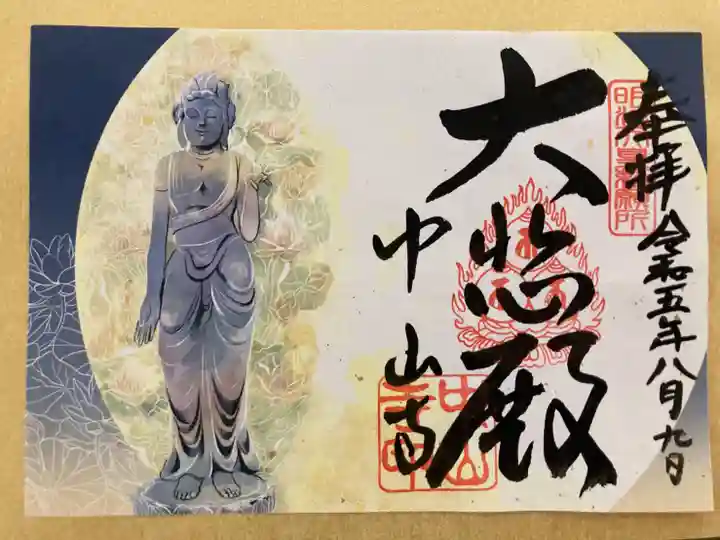 奉拝 令和五年八月九日
大悲殿
中山寺
中山寺印